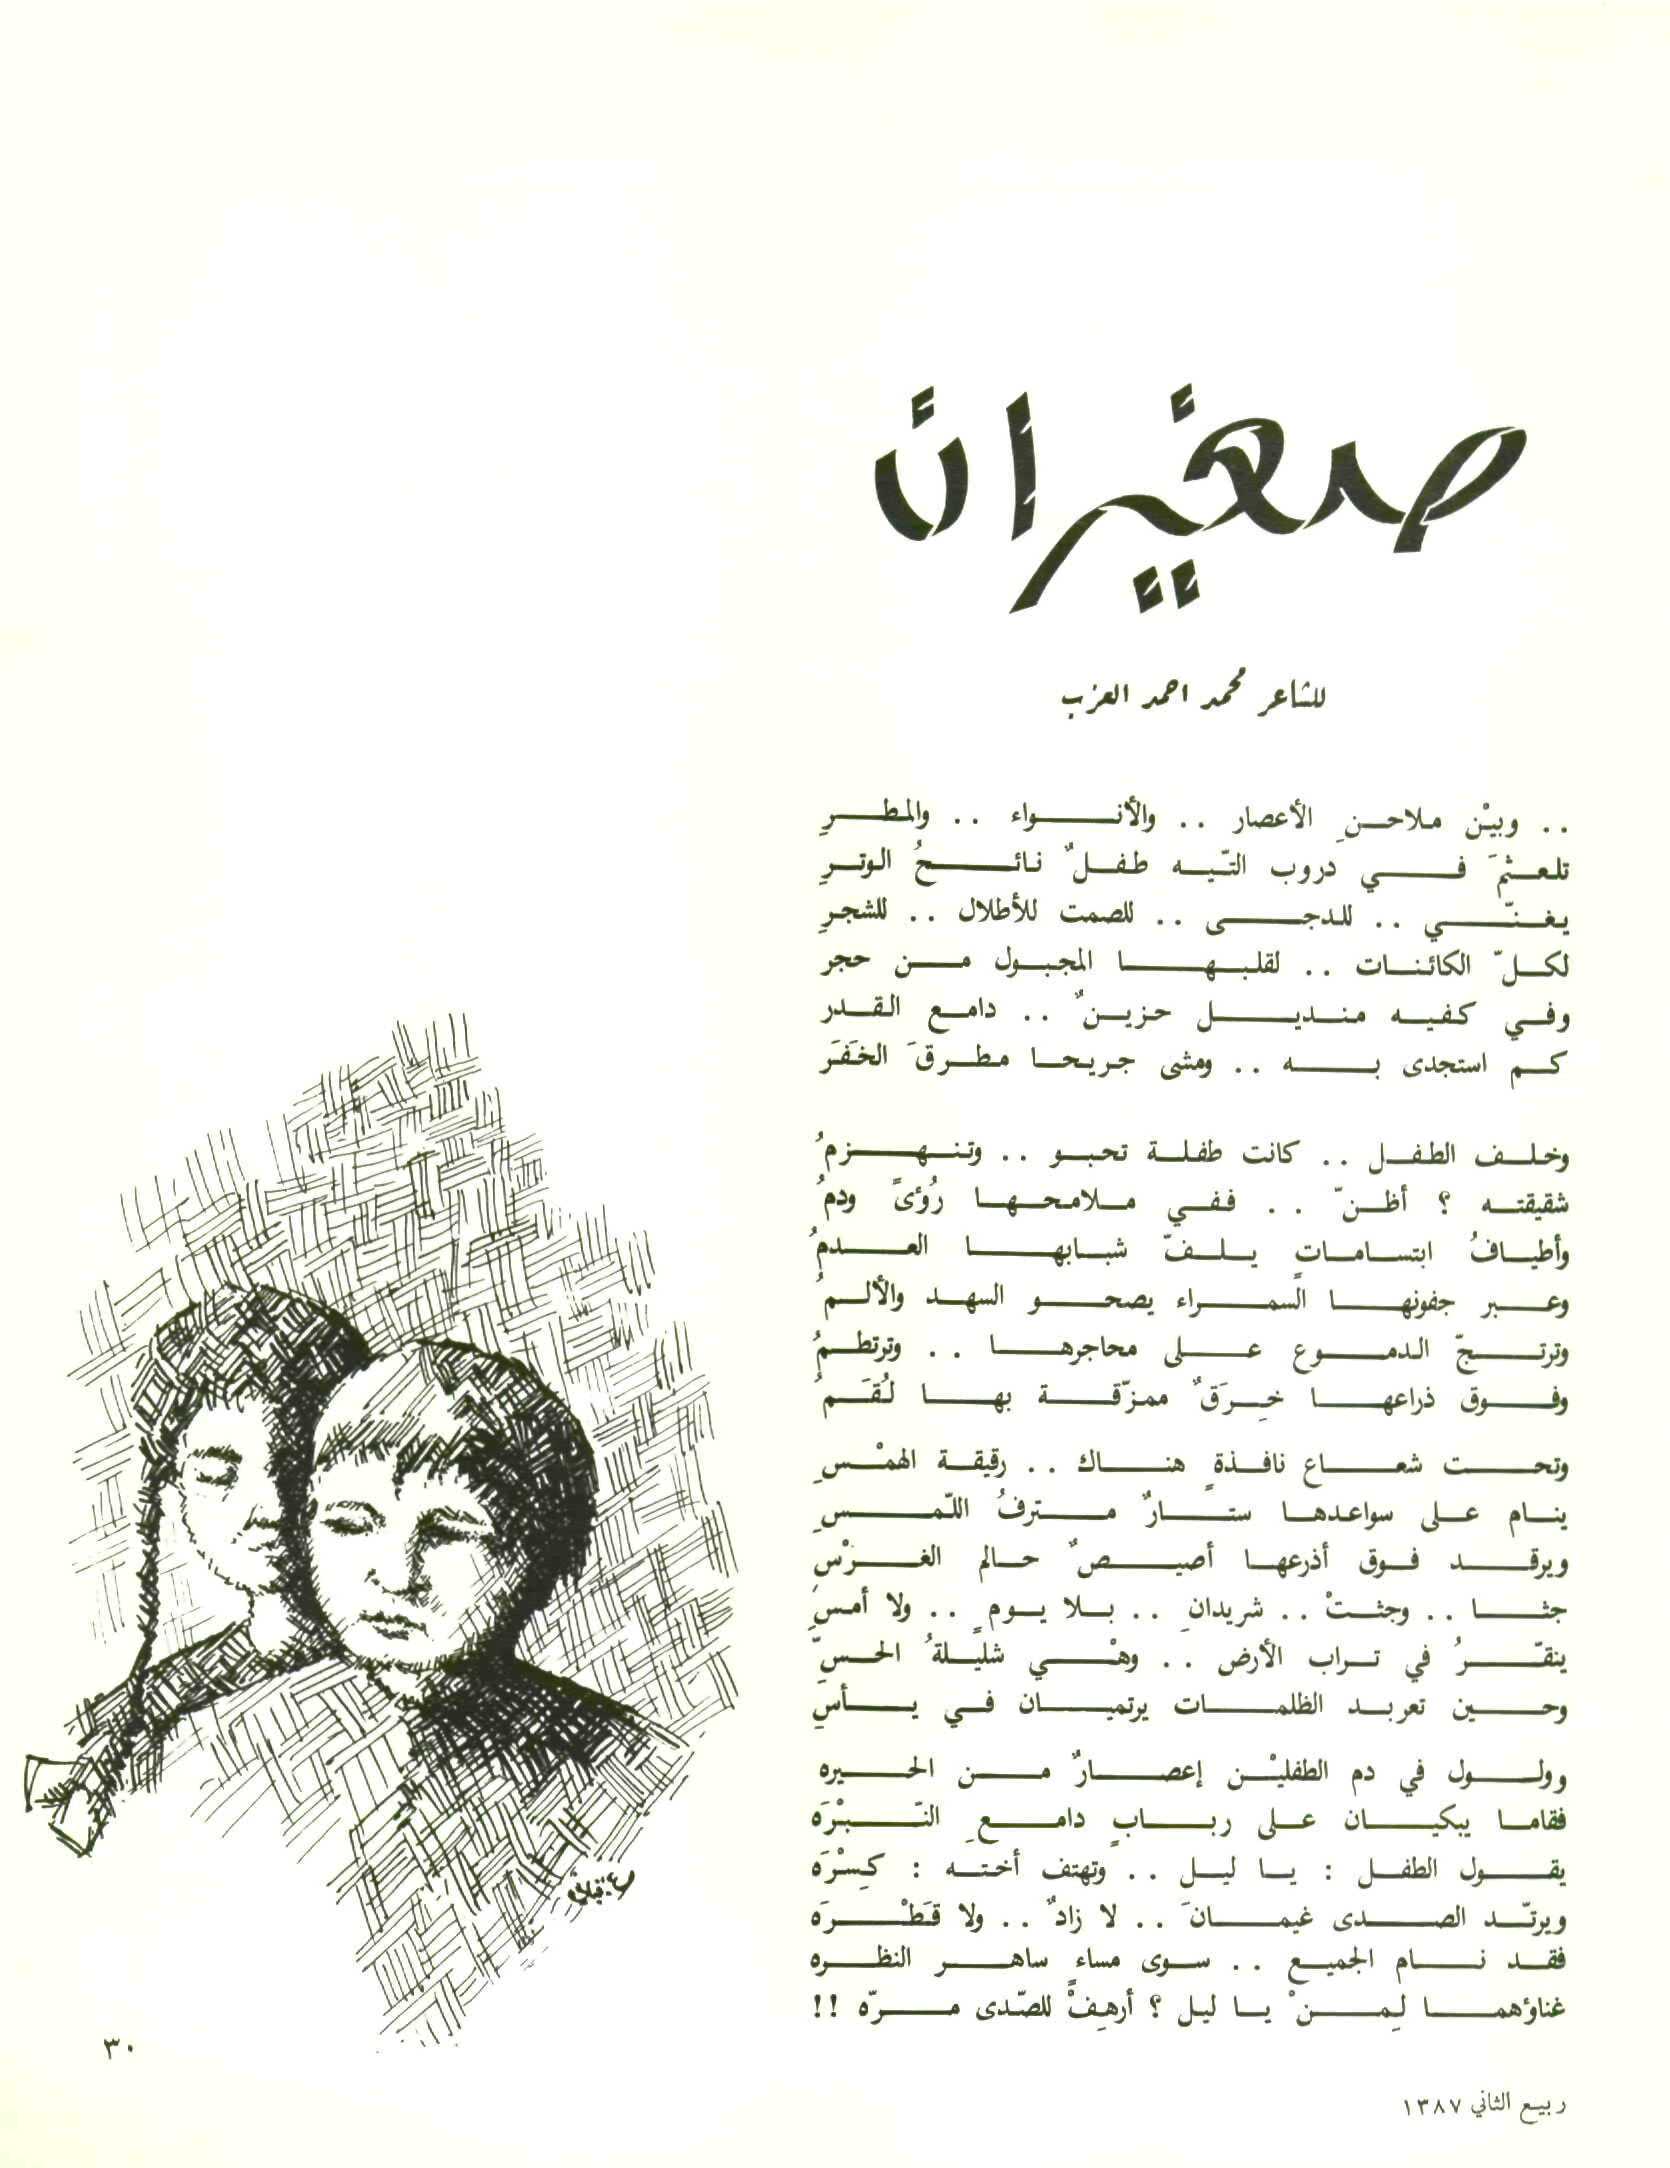 صغيران
للشاعر محمد احمد العزب
.. وبيْن ملاحنِ الأعصار .. والأنواء .. والمطرِ
تلعثمَ في دروب التّيه طفلٌ نائحُ الوترِ
يغنّي .. للدجى .. للصمت للأطلال .. للشجرِ
لكلّ الكائنات .. لقلبها المجبول من حجر
وفي كفيه منديل حزينٌ .. دامع القدر
كم استجدى به .. ومشى جريحا مطرقَ الخَفَر
وخلف الطفل .. كانت طفلة تحبو .. وتنهزمُ
شقيقته ؟ أظنّ .. ففي ملامحها رُؤىً ودمُ
وأطيافُ ابتسامات يلفّ شبابها العدمُ
وعبر جفونها السمراء يصحو السهد والألمُ
وترتجّ الدموع على محاجرها .. وترتطمُ
وفوق ذراعها خِرَقٌ ممزّقة بها لُقَمُ
وتحت شعاع نافذةٍ هناك .. رقيقة الهمْسِ
ينام على سواعدها ستارٌ مترفُ اللّمسِ
ويرقد فوق أذرعها أصيصٌ حالم الغرْسِ
جثا .. وجثتْ .. شريدانِ .. بلا يومٍ .. ولا أمسِ
ينقّرُ في تراب الأرض .. وهْي شليلةُ الحسِّ
وحين تعربد الظلمات يرتميان في يأسِ
وولول في دم الطفليْن إعصارٌ من الحيره
فقاما يبكيان على ربابٍ دامعِ النّبْرَه
يقول الطفل : يا ليل .. وتهتف أخته : كِسْرَه
ويرتّد الصدى غيمانَ .. لا زادٌ .. ولا قَطْرَه
فقد نام الجميع .. سوى مساء ساهر النظره
غناؤهما لِمنْ يا ليل ؟ أرهِفْ للصّدى مرّه !!
٣٠
ربيع الثاني ١٣٨٧